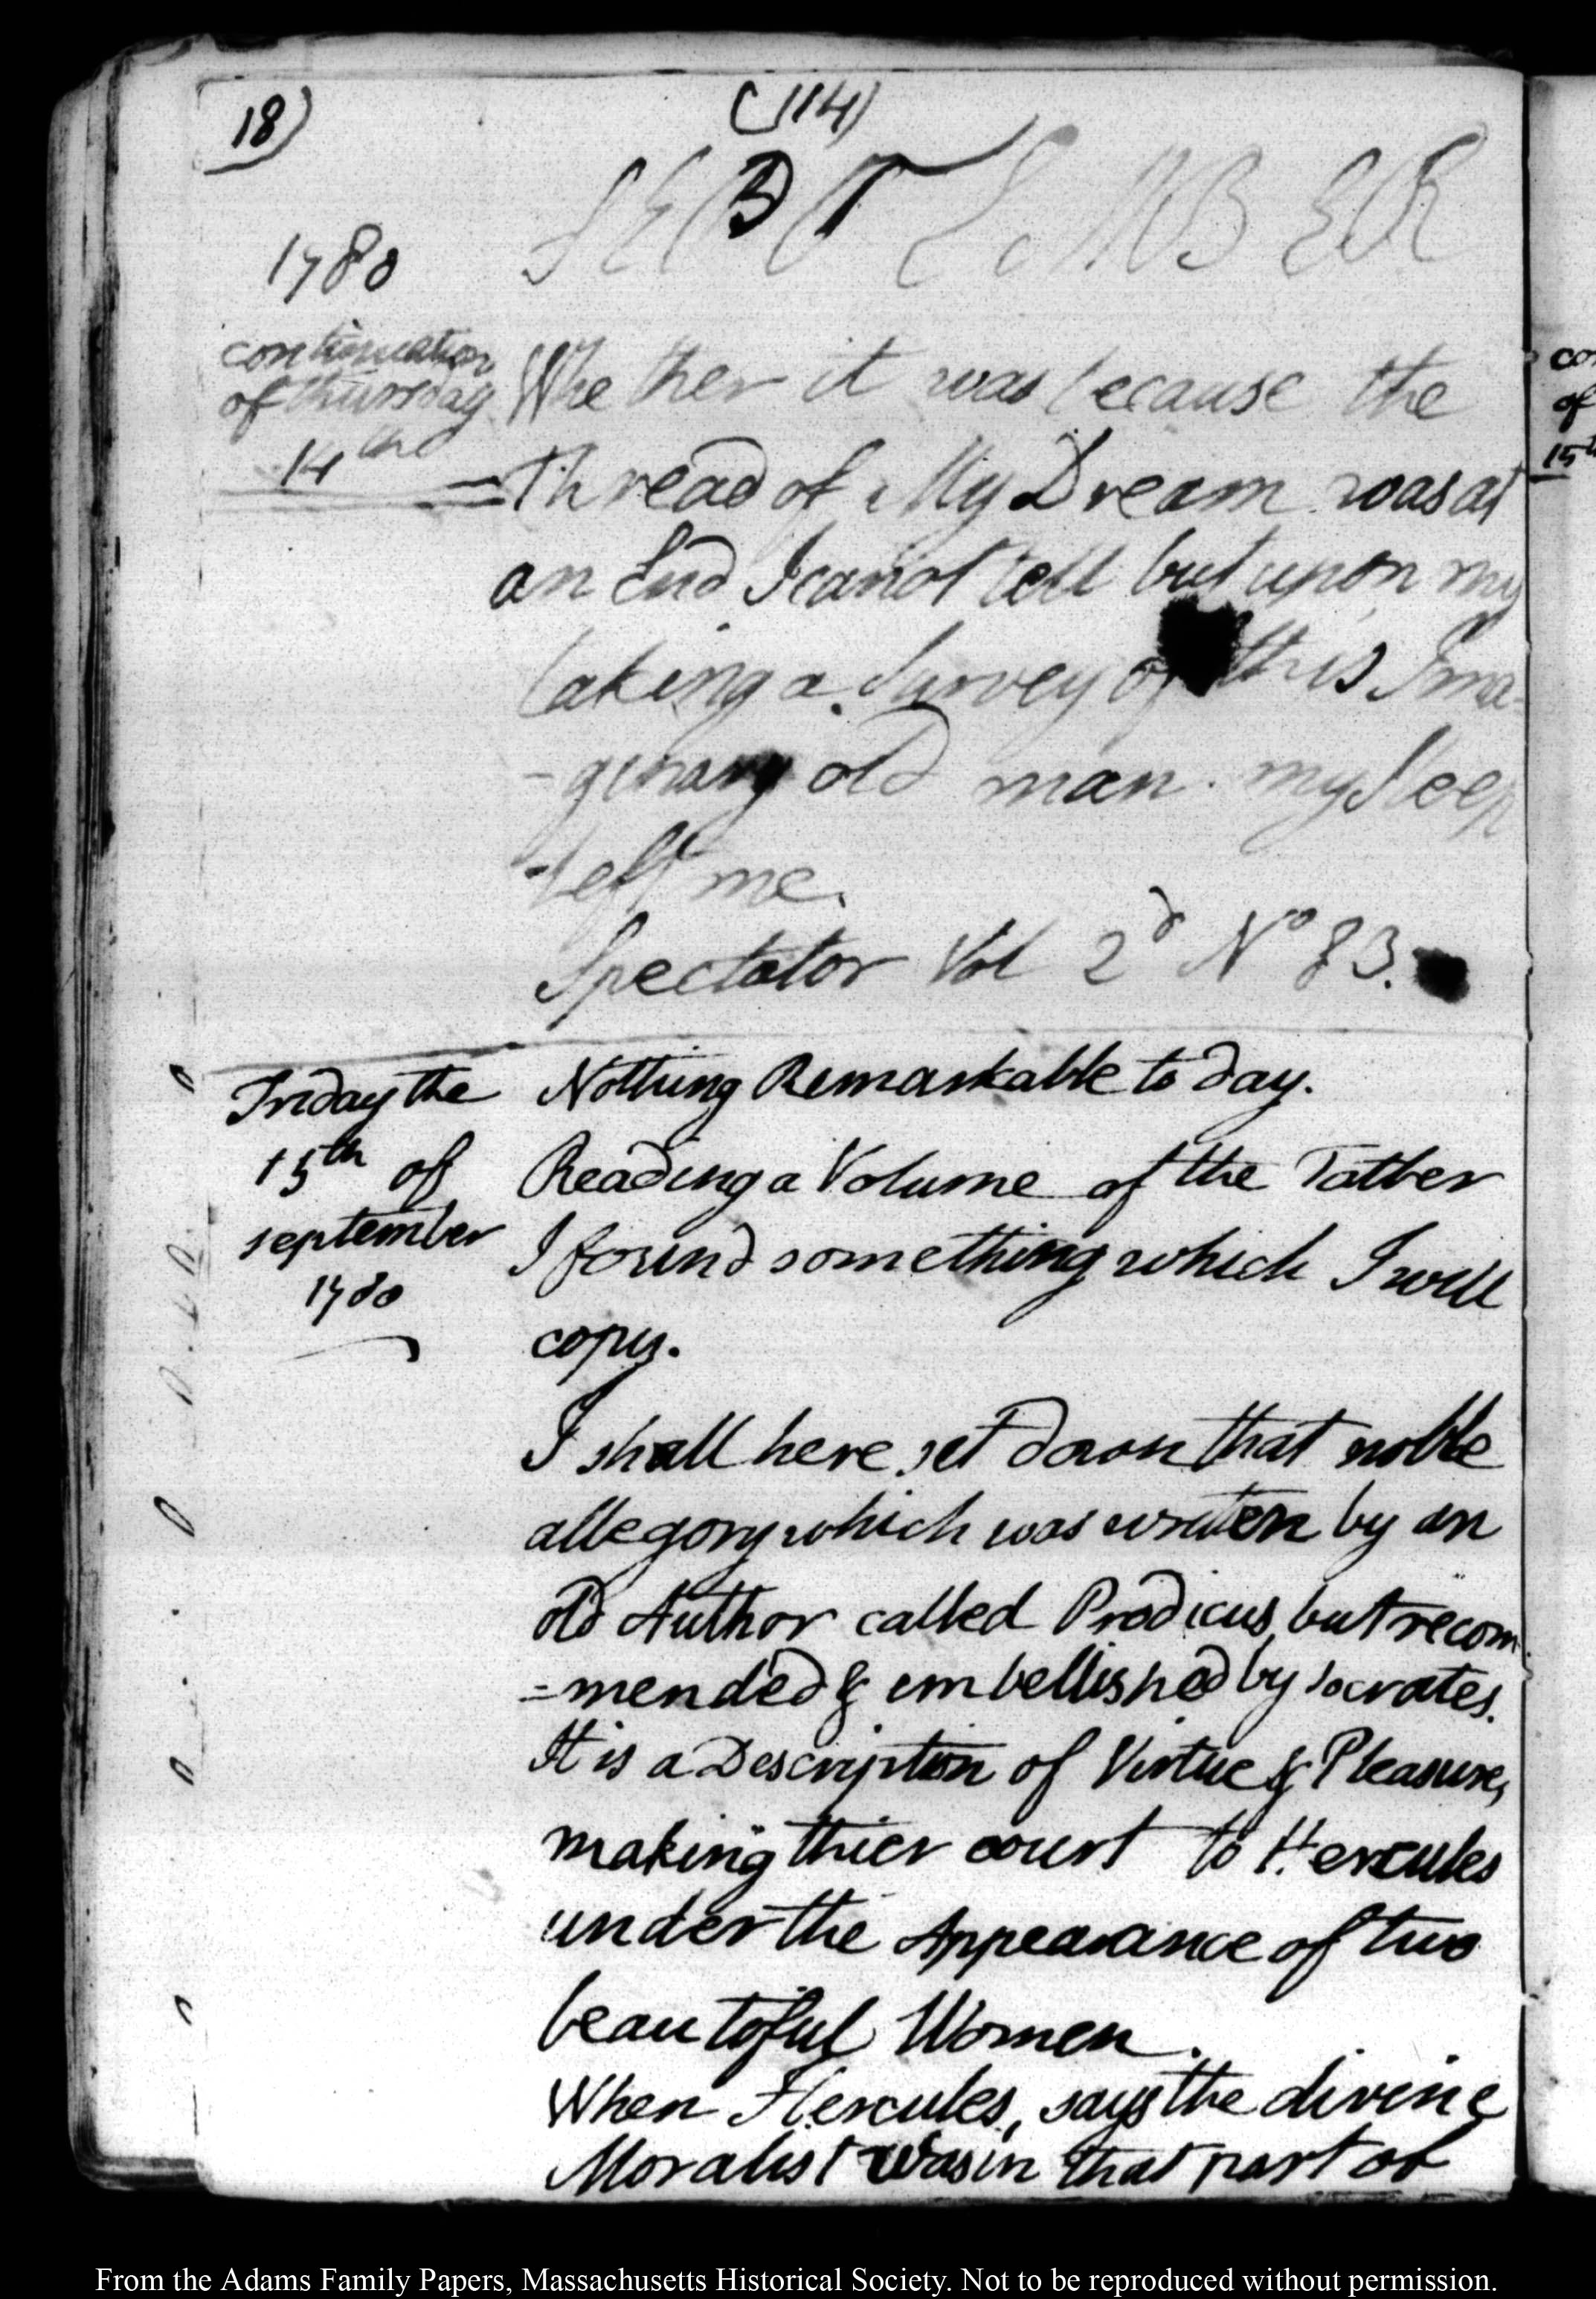 18)
(114)
SEPTEMBER
1780
continuation
of thursday
14th
Whether it was because the
=Thread of My Dream was at
an End I canot tell but upon my
taking a Survey of this Ima-
-ginary old man. my sleep
-left me.
Spectator Vol 2d No 83.
Friday the
15th of
september
1780
Nothing Remarkable to day.
Reading a Volume of the Tatler
I found something which I will
copy.
I shall here set down that noble
allegory which was writen by an
old Author called Prodicus, but recom
=mended & embellished by Socrates.
It is a Description of Virtue & Pleasure,
making thier court to Hercules
under the Appearance of two
beautiful Women.
When Hercules, says the divine
Moralist was in that part of
co
of
15th
From the Adams Family Papers, Massachusetts Historical Society. Not to be reproduced without permission.